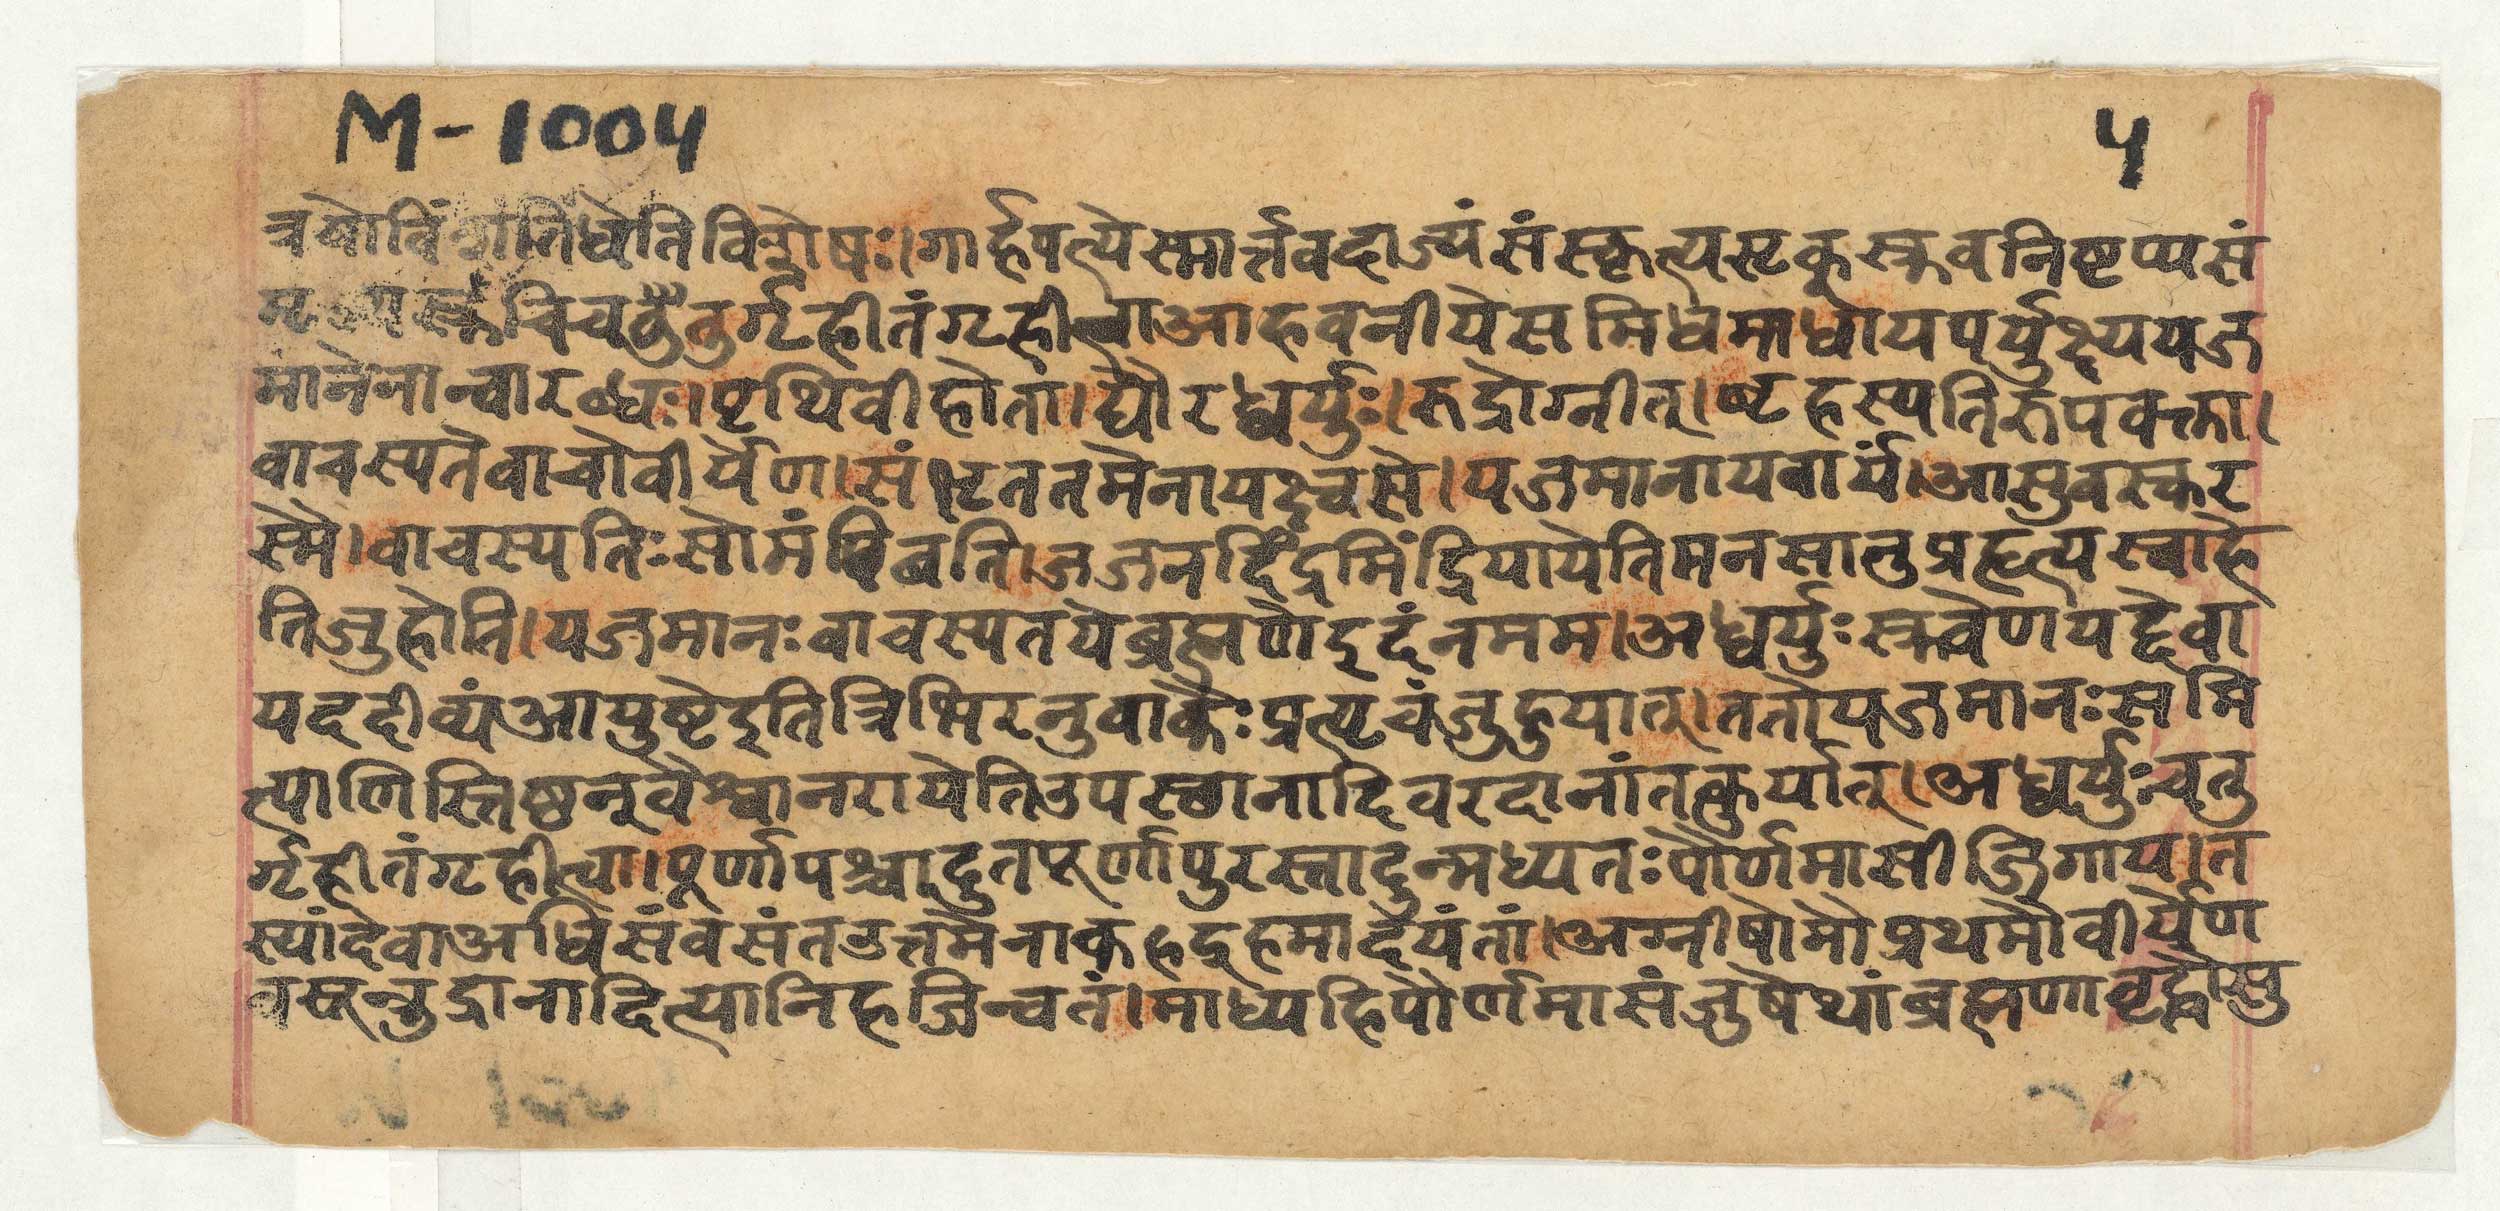 M-1004
५
त्रयोविंशतिधेतिविशेषः।गार्हपत्येस्मार्त्तवदाज्यंसंस्कृत्यसृक्स्रुवनिष्टप्यसं
चतुर्गृहीतंगृहीत्वाआहवनीयेसमिधमाधायपर्युक्ष्ययज
मानेनान्वारब्धः।पृथिवीहोता।द्यौरध्वर्युः।रुद्रोग्नीत्।बृहस्पतिरुपवक्ता।
वाचस्पतेवाचोवीर्येण।संभृततमेनायक्ष्यसे।यजमानायवार्यं।आसुवस्कर
स्मै।वाचस्पतिःसोमंपिबति।जजनदिंद्रमिंद्रियायेतिमनसानुप्रहृत्यस्वाहे
तिजुहोति।यजमानःवाचस्पतयेब्रह्मणेइदंनमम।अध्वर्युःस्रुवेणयद्देवा
यददीव्यंआयुष्टेइतित्रिभिरनुवाकैःप्रत्यृचंजुहुयात्।ततोयजमानःसमि
त्पाणिस्तिष्ठन्वैश्वानरायेतिउपस्थानादिवरदानांतंकुर्यात्।अध्वर्युःचतु
र्गृहीतंगृहीत्वा।पूर्णापश्चादुतपूर्णापुरस्तादुन्मध्यतःपौर्णमासीजिगाय।त
स्यांदेवाअधिसंवसंतउत्तमेनाकहइहमादयंतां।अग्नीषोमौप्रथमौवीर्येण
वसून्रुद्रानादित्यानिहजिन्वतं।माध्यहिपौर्णमासंजुषेथांब्रह्मणावृद्धौसु